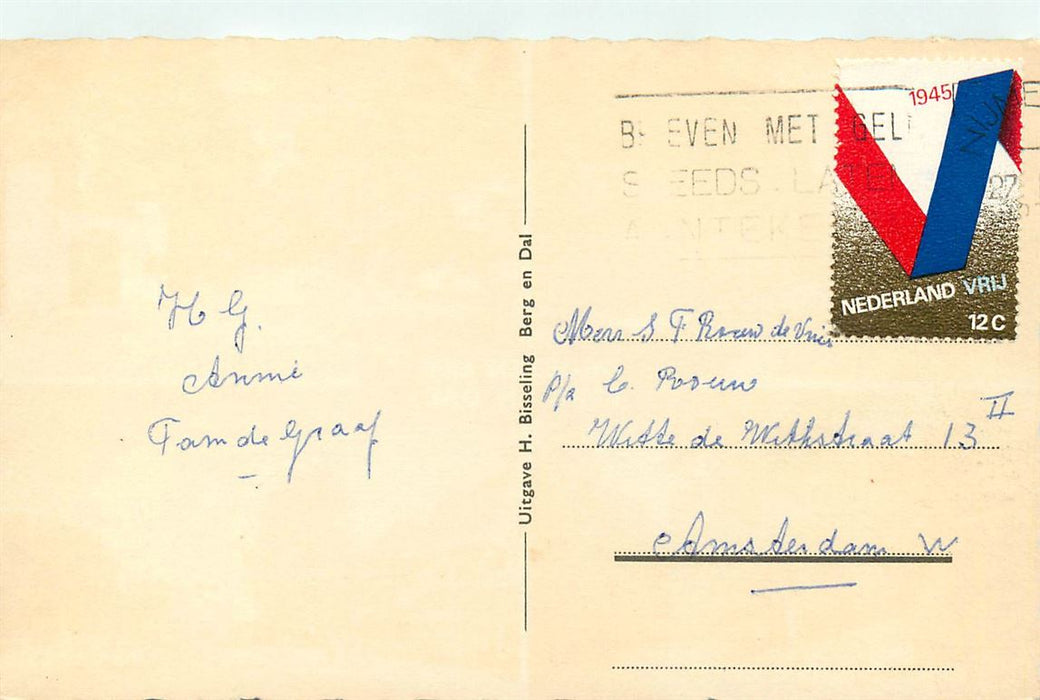 H G.
Annie
Fam de Graaf
Uitgave H. Bisseling Berg en Dal
B EVEN MET GEL
S EEDS LATEN
A NTEKE
1945
NEDERLAND VRIJ
12 C
NIJME
27
Mevr S F Rouw de Vries
p/a C. Rouw
Witte de Withstraat 13 II
Amsterdam W